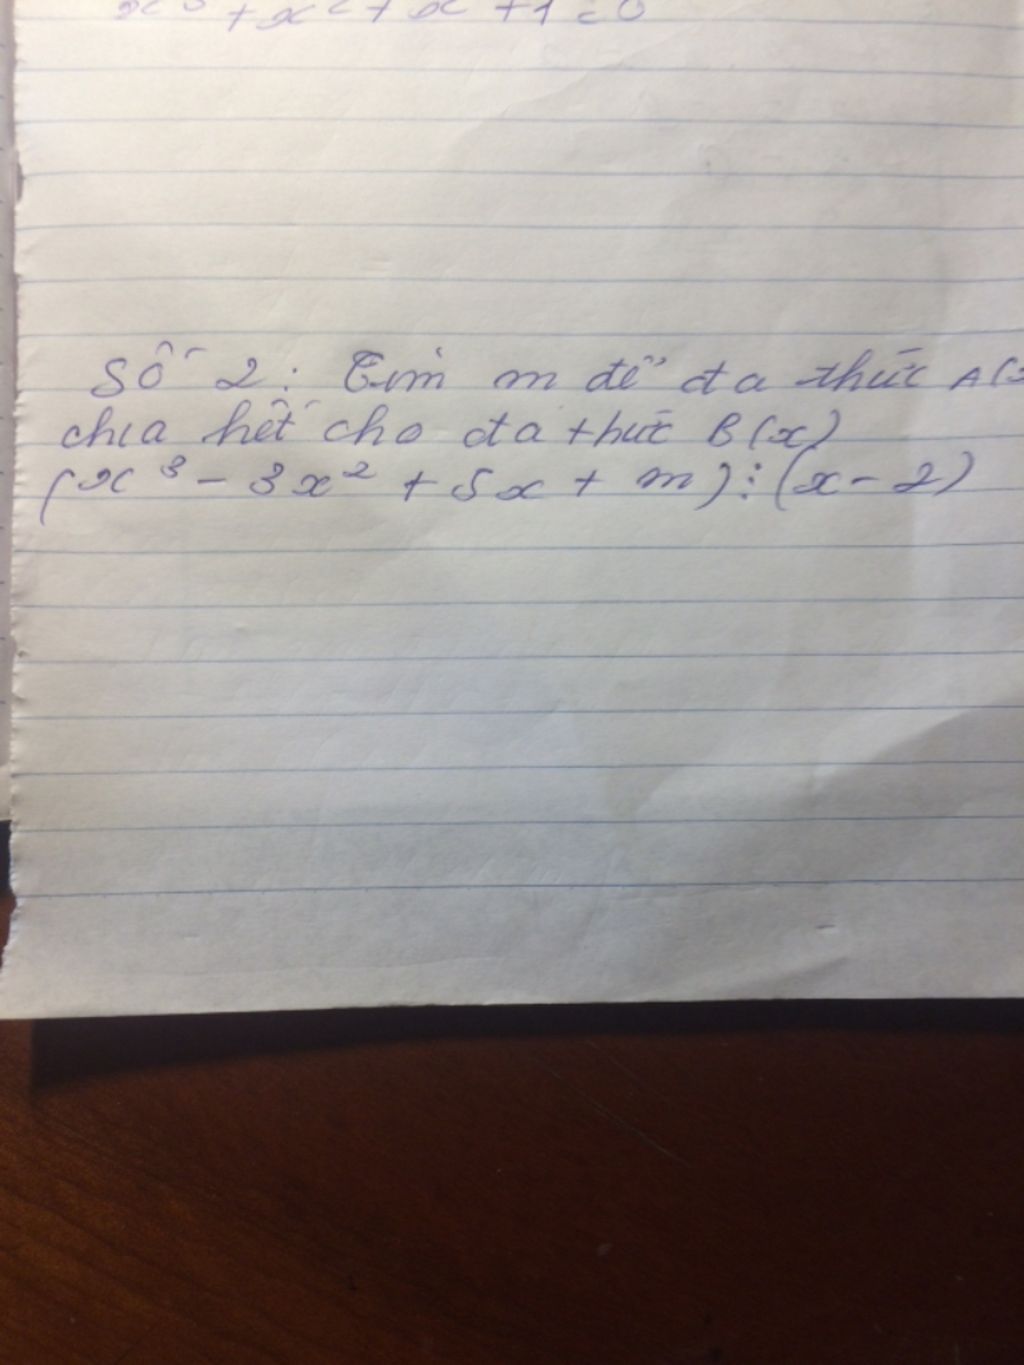 x³ + x² + x + 1 = 0
Số 2: Tìm m để đa thức A(x
chia hết cho đa thức B(x)
(x³ - 3x² + 5x + m) : (x - 2)